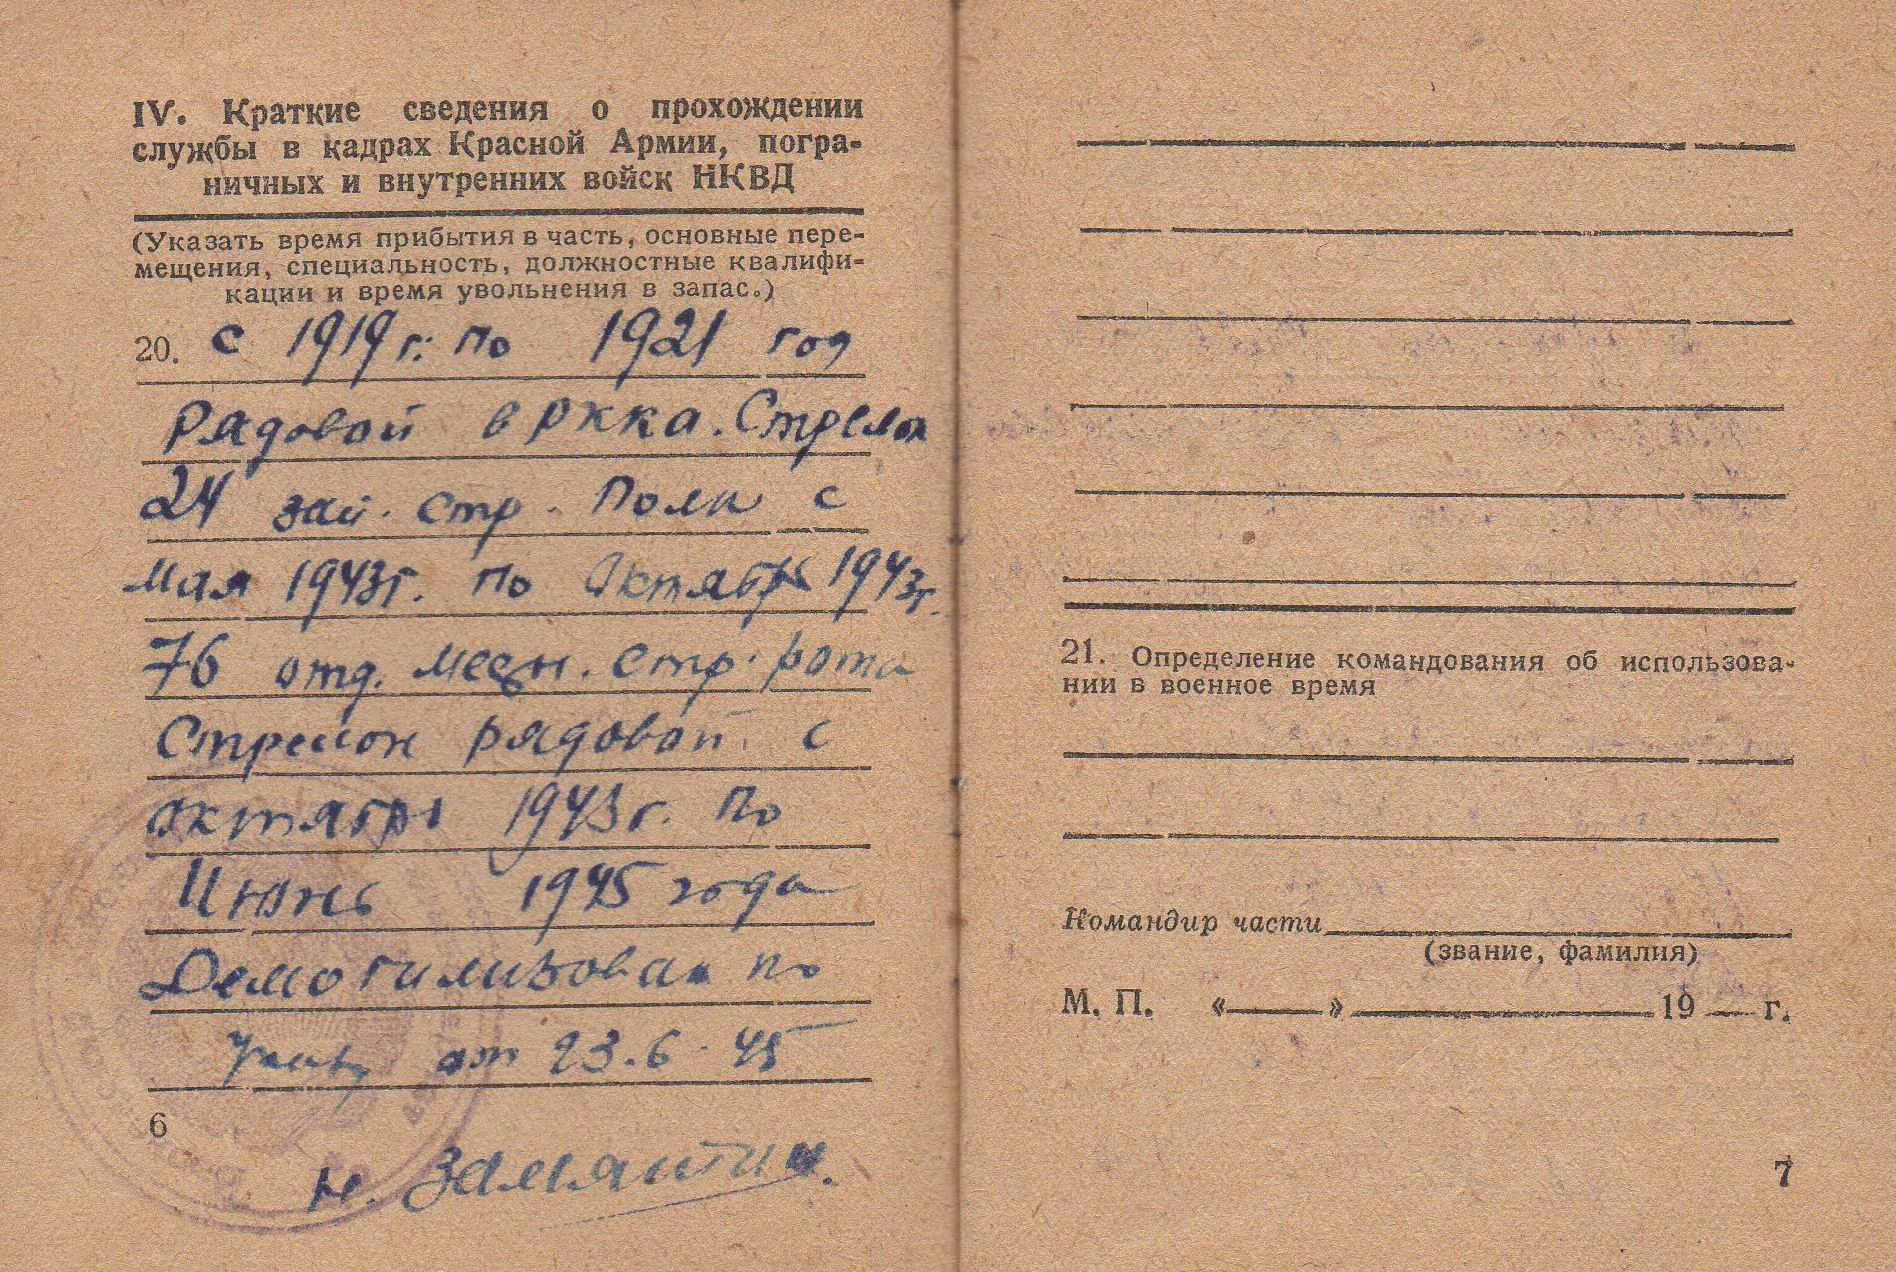 IV. Краткие сведения о прохождении
службы в кадрах Красной Армии, погра-
ничных и внутренних войск НКВД
(Указать время прибытия в часть, основные пере-
мещения, специальность, должностные квалифи-
кации и время увольнения в запас.)
20. с 1919 г. по 1921 год
Рядовой в РККА. Стрелок
24 зап. стр. полк с
Мая 1943г. по Октябрь 1943г.
76 отд. местн. стр. рота
Стрелок рядовой с
октября 1943 г. по
Июнь 1945 года
Демобилизован по
Указу от 23.6.45
6
Н. Замятин.
21. Определение командования об использова-
нии в военное время
Командир части
(звание, фамилия)
М. П. « » 19 г.
7